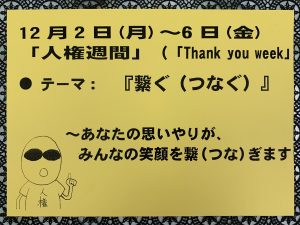 12月2日(月)～6日(金)
「人権週間」(「Thank you week」
● テーマ： 『繋ぐ(つなぐ)』
～あなたの思いやりが、
みんなの笑顔を繋(つな)ぎます
人権